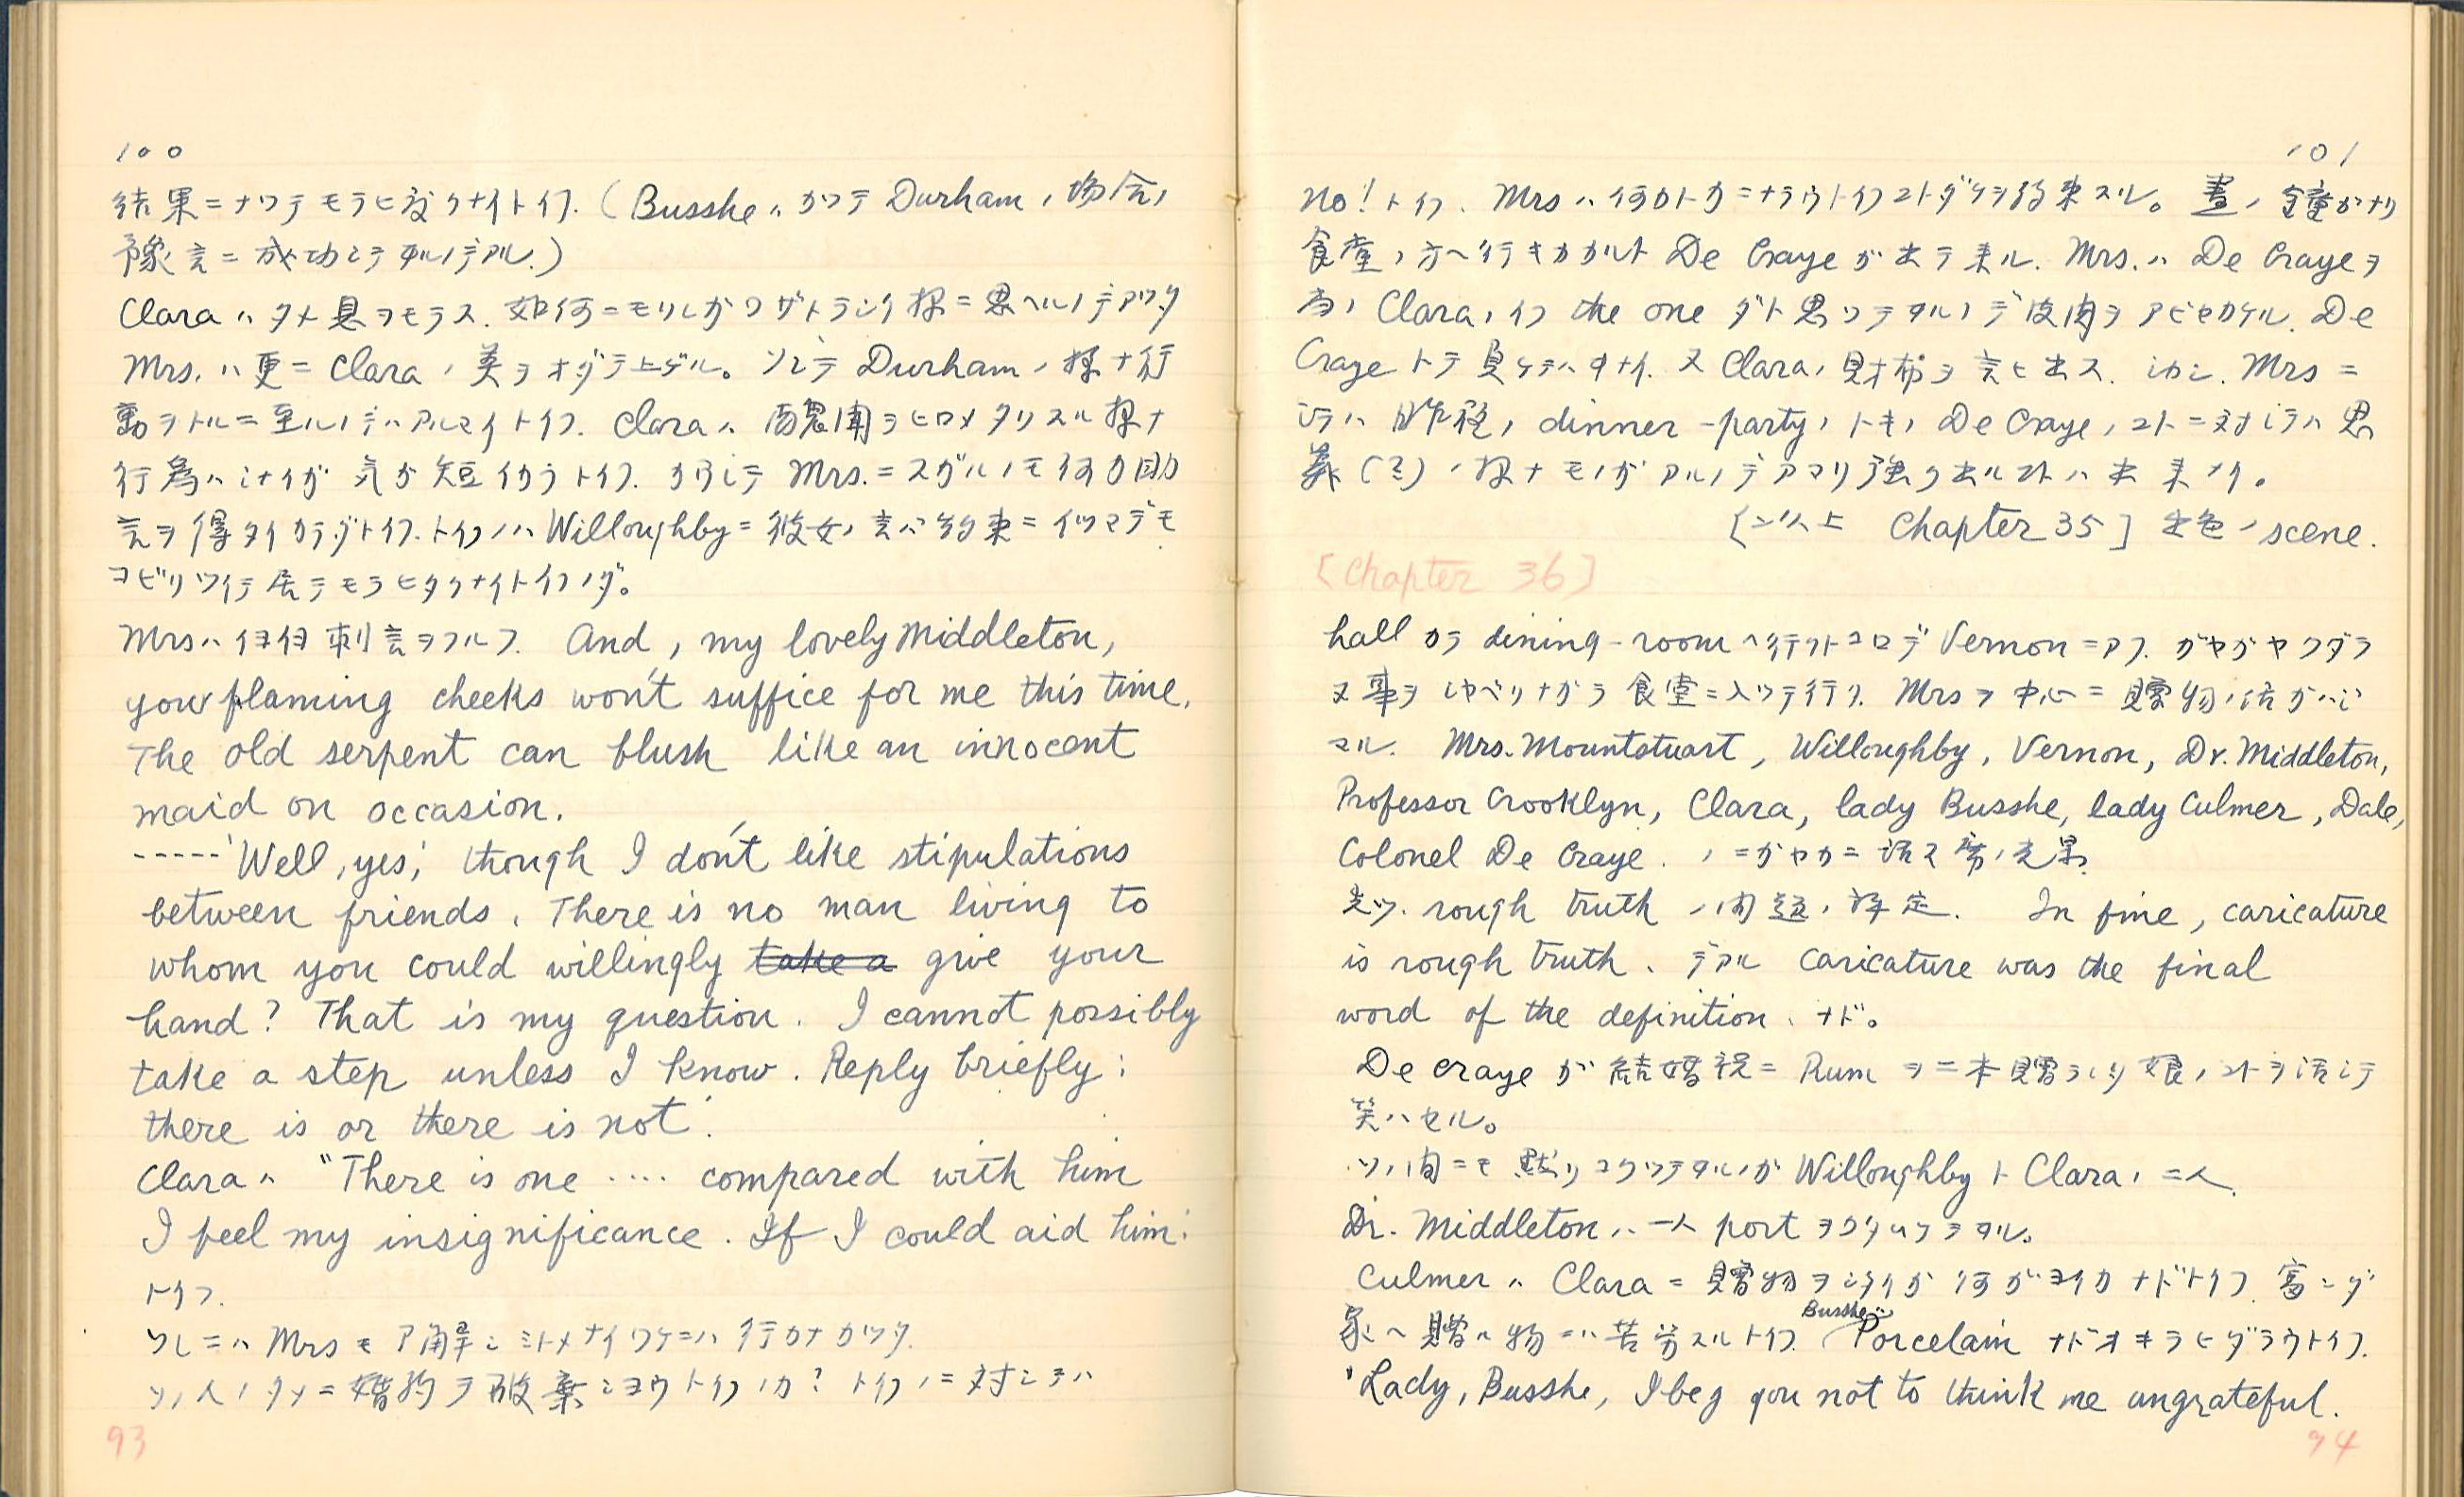 100
結果ニナツテモラヒ度クナイトイフ. (Bussheハカツテ Durhamノ場合ノ
予象言ニ成功シテヰルノデアル.)
Claraハタメ息ヲモラス. 如何ニモソレガワザトラシク様ニ思ヘルノデアツタ
Mrs.ハ更ニ Claraノ美ヲオダテ上ゲル。ソシテ Durhamノ様ナ行
動ヲトルニ至ルノデハアルマイトイフ. Claraハ醜聞ヲヒロメタリスル様ナ
行為ハシナイガ 気ガ短イカラトイフ. カウシテ Mrs.ニスガルノモ何カ助
言ヲ得タイカラダトイフ. トイフノハ Willoughbyニ彼女ノ言ハ約束ニイツマデモ
コビリツイテ居テモラヒタクナイトイフノダ。
Mrsハ仔仔刺言ヲフルフ. And, my lovely Middleton,
your flaming cheeks won't suffice for me this time.
The old serpent can blush like an innocent
maid on occasion.
-----'Well, yes,' though I don't like stipulations
between friends. There is no man living to
whom you could willingly take a give your
hand? That is my question. I cannot possibly
take a step unless I know. Reply briefly:
there is or there is not.'
Claraハ "There is one .... compared with him
I feel my insignificance. If I could aid him.'
トイフ.
ソレニハ Mrsモア解シミトメナイワケニハ行カナカツタ.
ソノ人ノタメニ婚約ヲ破棄シヨウトイフノカ? トイフノニ対シテハ
93
101
No! トイフ. Mrsハ何カトカニナラウトイフコトダケヲ約束スル。 昼ノ鐘ガナリ
食堂ノ方ヘ行キカカルト De Crayeガ出テ来ル. Mrs.ハ De Crayeヲ
当ノ Claraノイフ the one ダト思ツテヰルノデ皮肉ヲアビセカケル. De
Crayeトテ負ケテハヰナイ. 又 Claraノ財布ヲ言ヒ出ス. シカシ. Mrsニ
シテハ昨夜ノ dinner-partyノトキノ De Crayeノコトニ対シテハ思
義(ミ)ノ様ナモノガアルノデアマリ強ク出ルコトハ出来ナイ。
[以上 Chapter 35] 出色ノ scene.
[Chapter 36]
hallカラ dining-roomヘ行クトコロデ Vernonニアフ. ガヤガヤクダラ
ヌ事ヲシヤベリナガラ食堂ニ入ツテ行ク. Mrsヲ中心ニ贈物ノ話ガハジ
マル. Mrs. Mountstuart, Willoughby, Vernon, Dr. Middleton,
Professor Crooklyn, Clara, lady Busshe, lady Culmer, Dale,
Colonel De Craye. ノニガヤカニ話ス席ノ光景.
先ヅ. rough truthノ問題ノ評定. In fine, caricature
is rough truth. デアル caricature was the final
word of the definition. ナド。
De Crayeガ結婚祝ニ Rumヲ二本贈ラレタ娘ノコトヲ話シテ
笑ハセル。
ソノ間ニモ黙リコクツテヰルノガ Willoughbyト Claraノ二人.
Dr. Middletonハ一人 portヲクタムケヲル。
Culmerハ Claraニ贈物ヲシタイガ何ガヨイカナドトイフ. 富ンダ
家ヘ贈ル物ニハ苦労スルトイフ. Bussheハ Porcelainナドオキラヒダラウトイフ.
'Lady, Busshe, I beg you not to think me ungrateful.
94